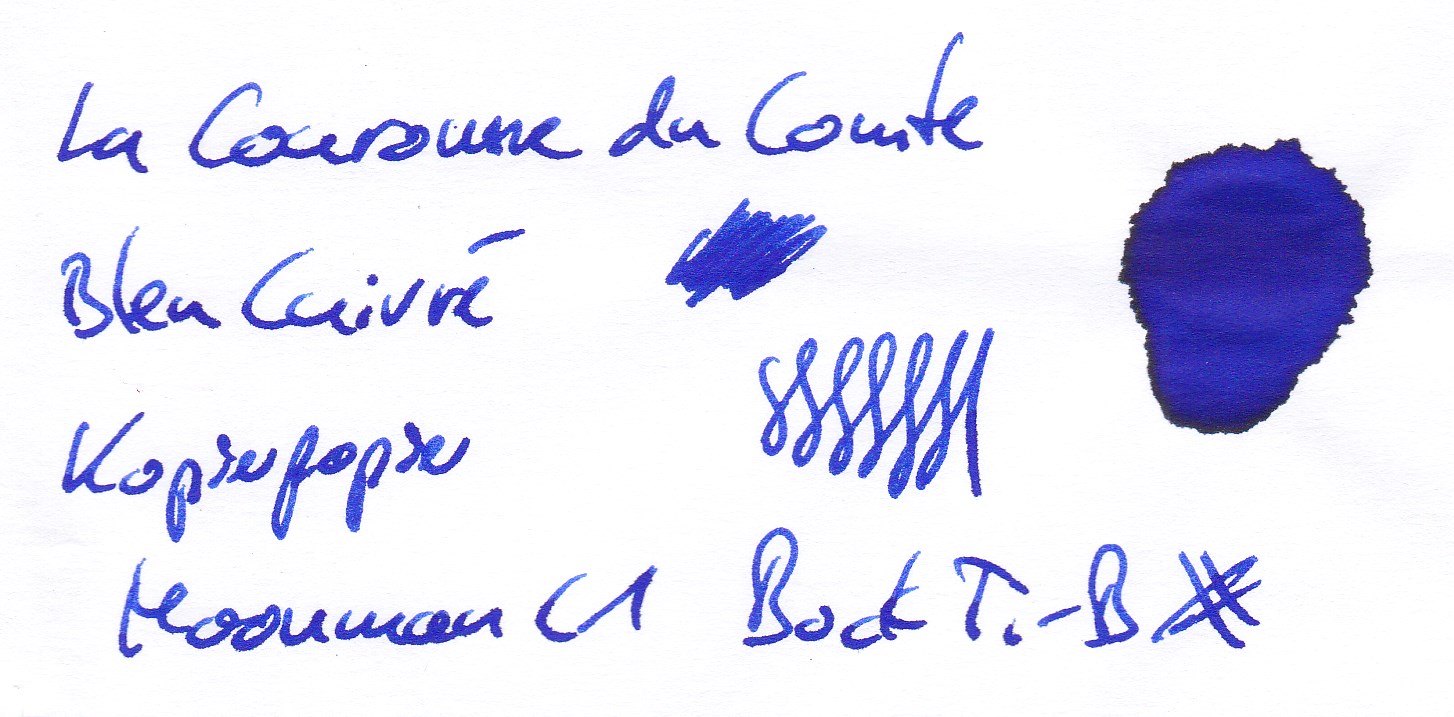 La Couronne du Comte
Bleu Cuivré
Kopierpapier
Moonman C1 Bock Ti-B